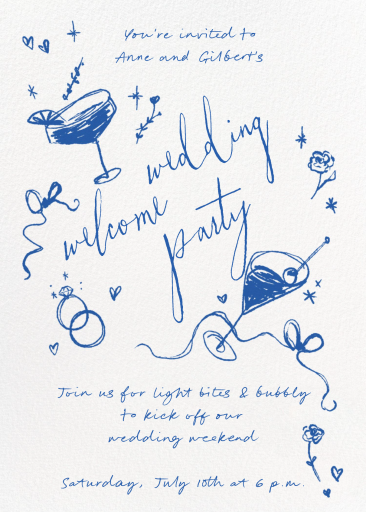 You're invited to
Anne and Gilbert's
wedding
welcome
party
Join us for light bites & bubbly
to kick off our
wedding weekend
Saturday, July 10th at 6 p.m.